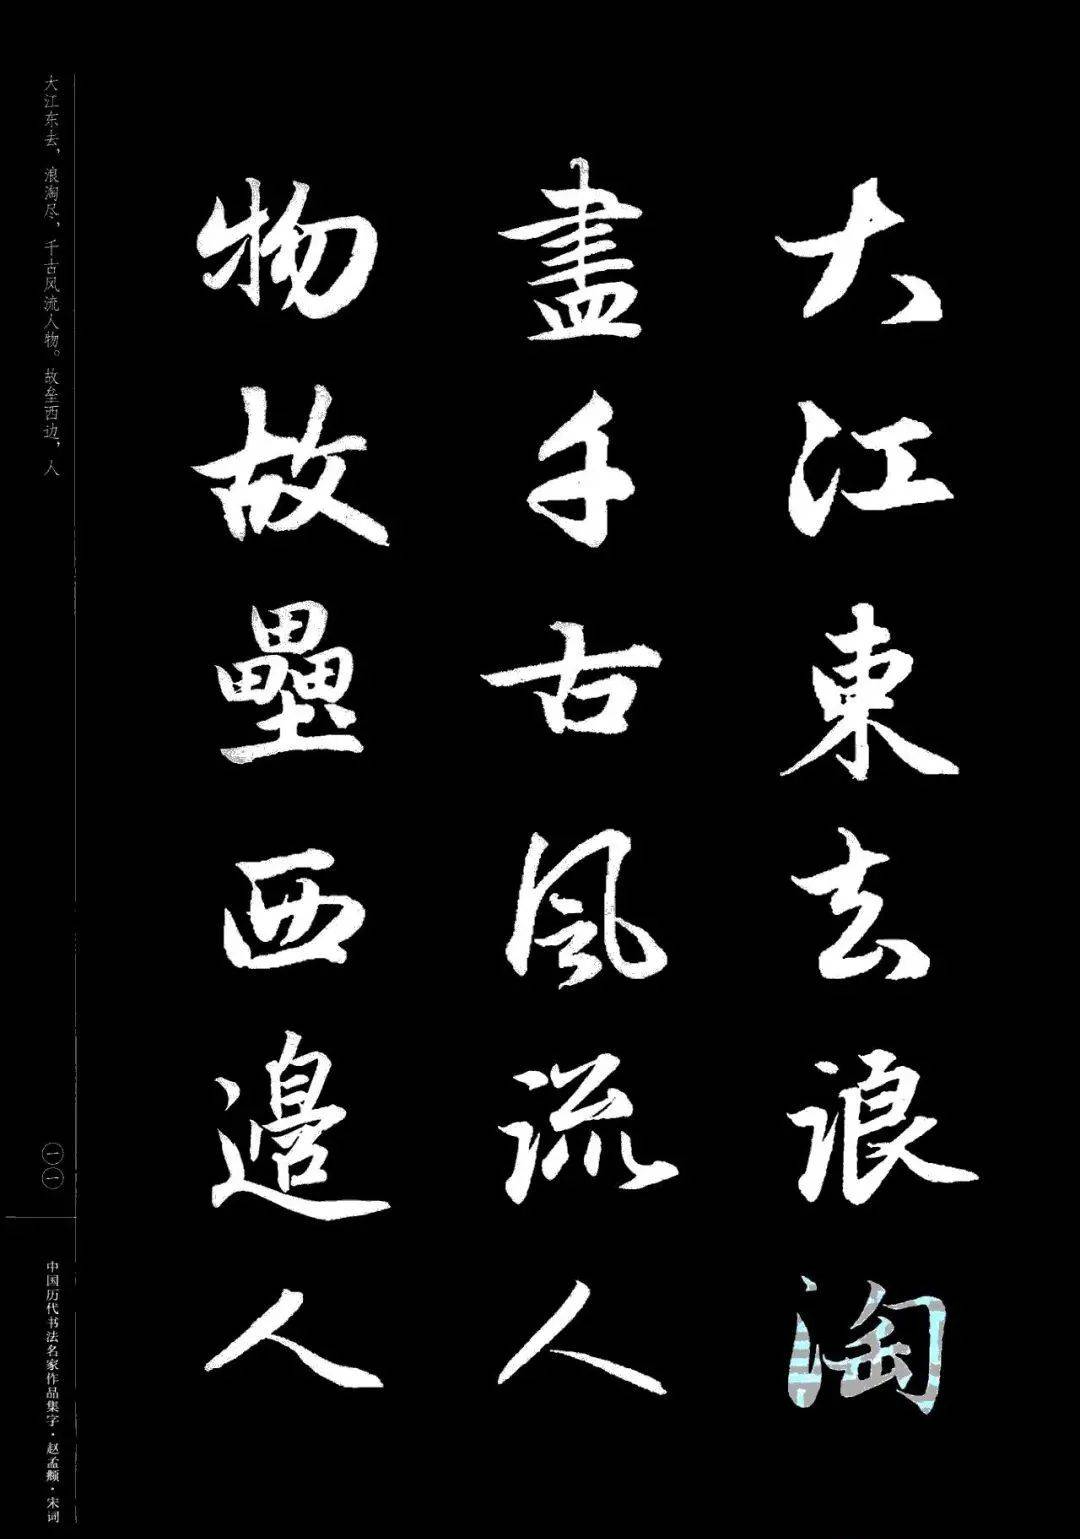 大江東去浪淘
盡千古風流人
物故壘西邊人
大江东去，浪淘尽，千古风流人物。故垒西边，人
一一
中国历代书法名家作品集字·赵孟頫·宋词